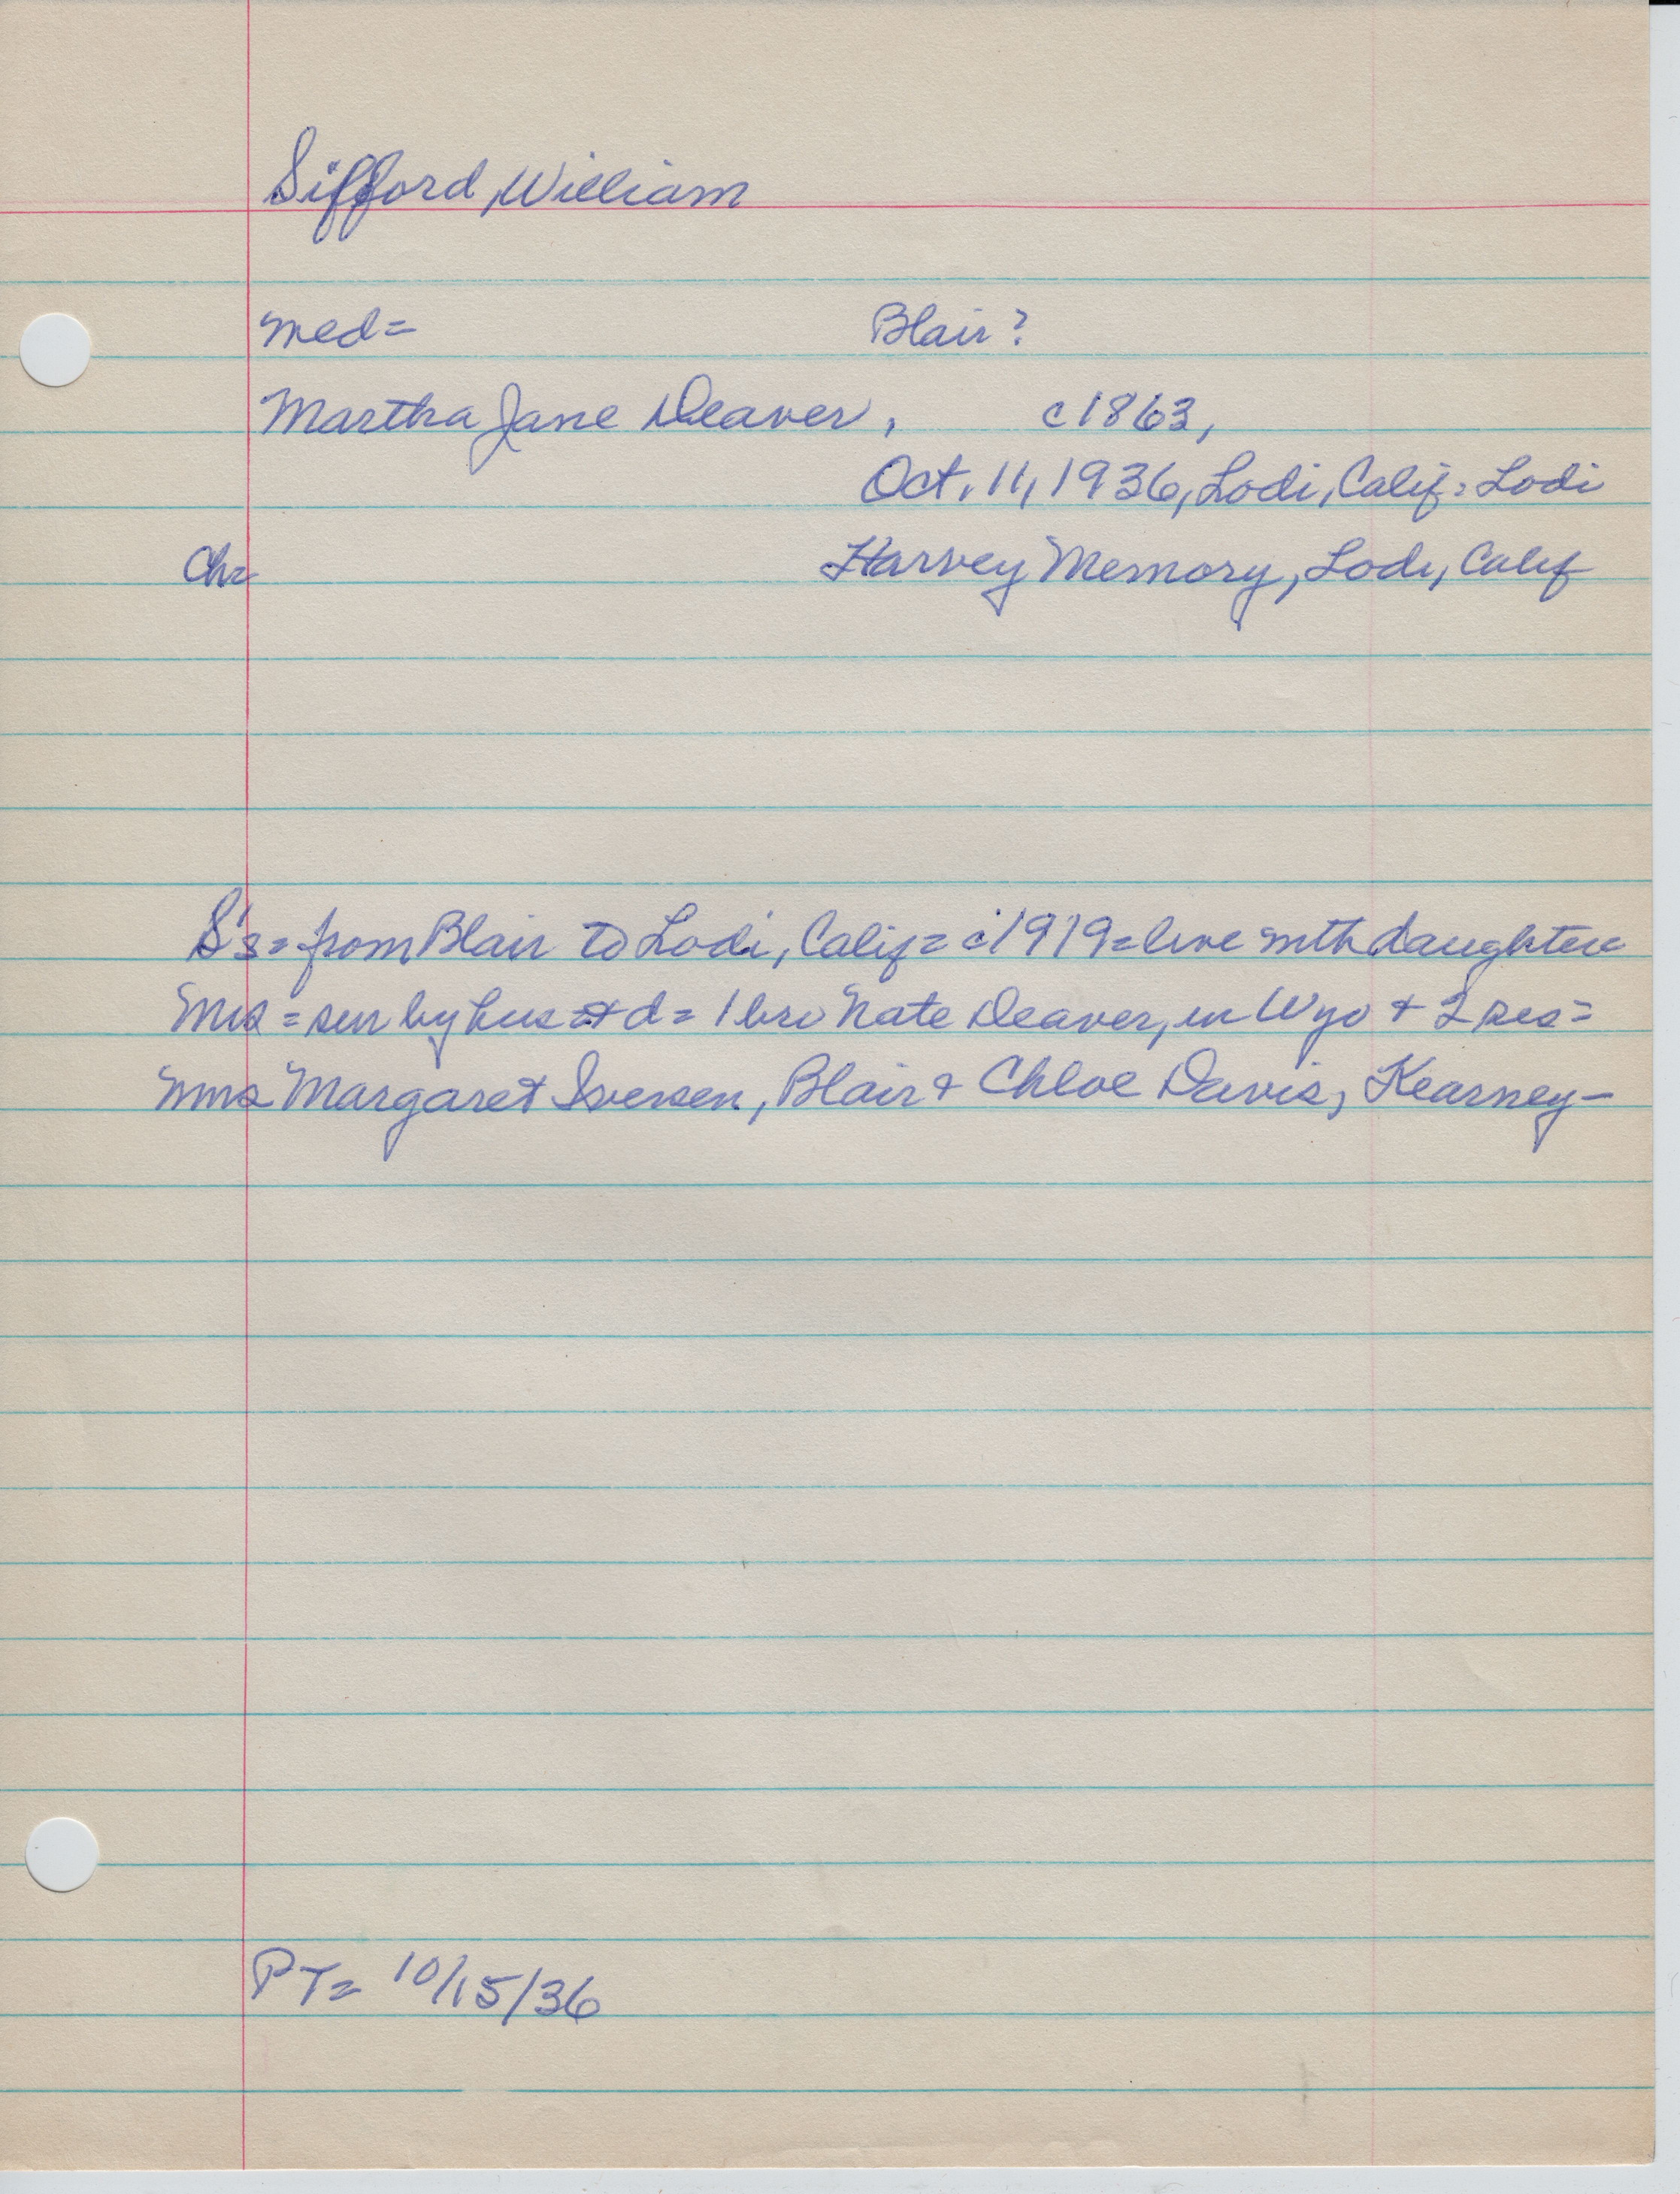 Sifford, William
med= Blair?
Martha Jane Deaver, c1863,
Oct. 11, 1936, Lodi, Calif= Lodi
Ch= Harvey Memory, Lodi, Calif
S's= from Blair to Lodi, Calif= c1919= live with daughter
Mrs = sur by hus + d= 1 bro Nate Deaver, in Wyo + 2 sis=
Mms Margaret Iversen, Blair + Chloe Davis, Kearney-
PT= 10/15/36